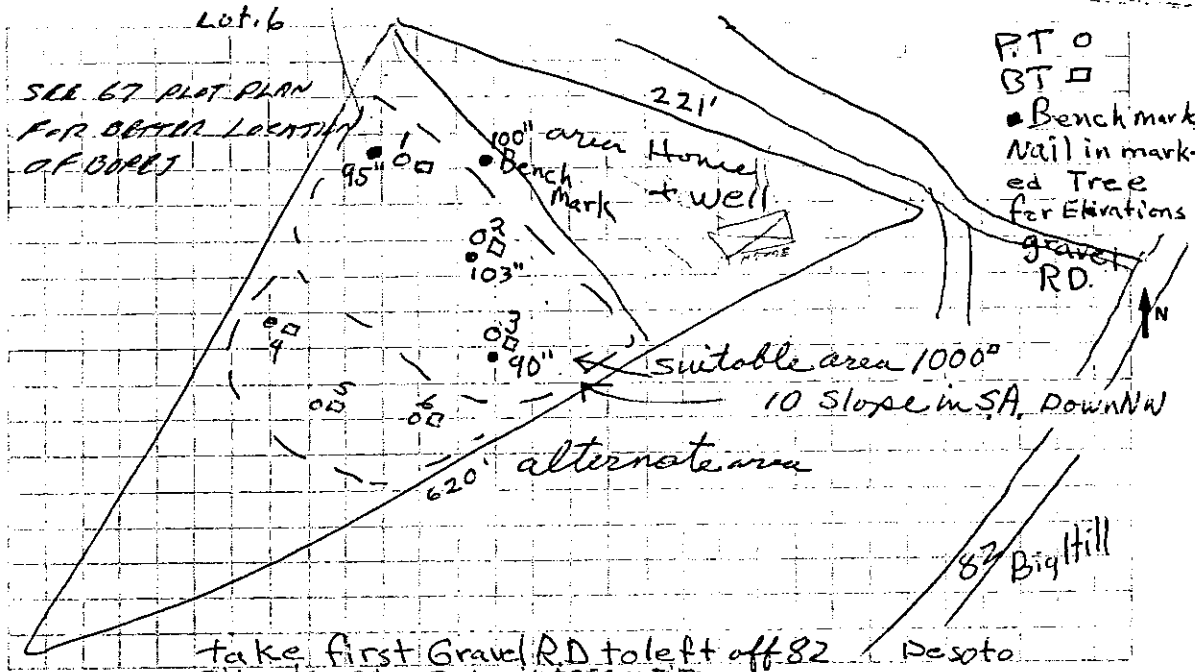 Lot.6
SEE 67 PLOT PLAN
FOR BETTER LOCATION
OF BORES
P.T O
BT □
• Bench mark
Nail in mark-
ed Tree
for Elevations
gravel
RD.
N
221'
100" area Home
+ well
Bench
Mark
HOME
95"
1
2
103"
3
90"
4
5
6
suitable area 1000□
10 Slope in S.A. Down NW
alternate area
620'
82 Big Hill
take first Gravel RD to left off 82
Desoto